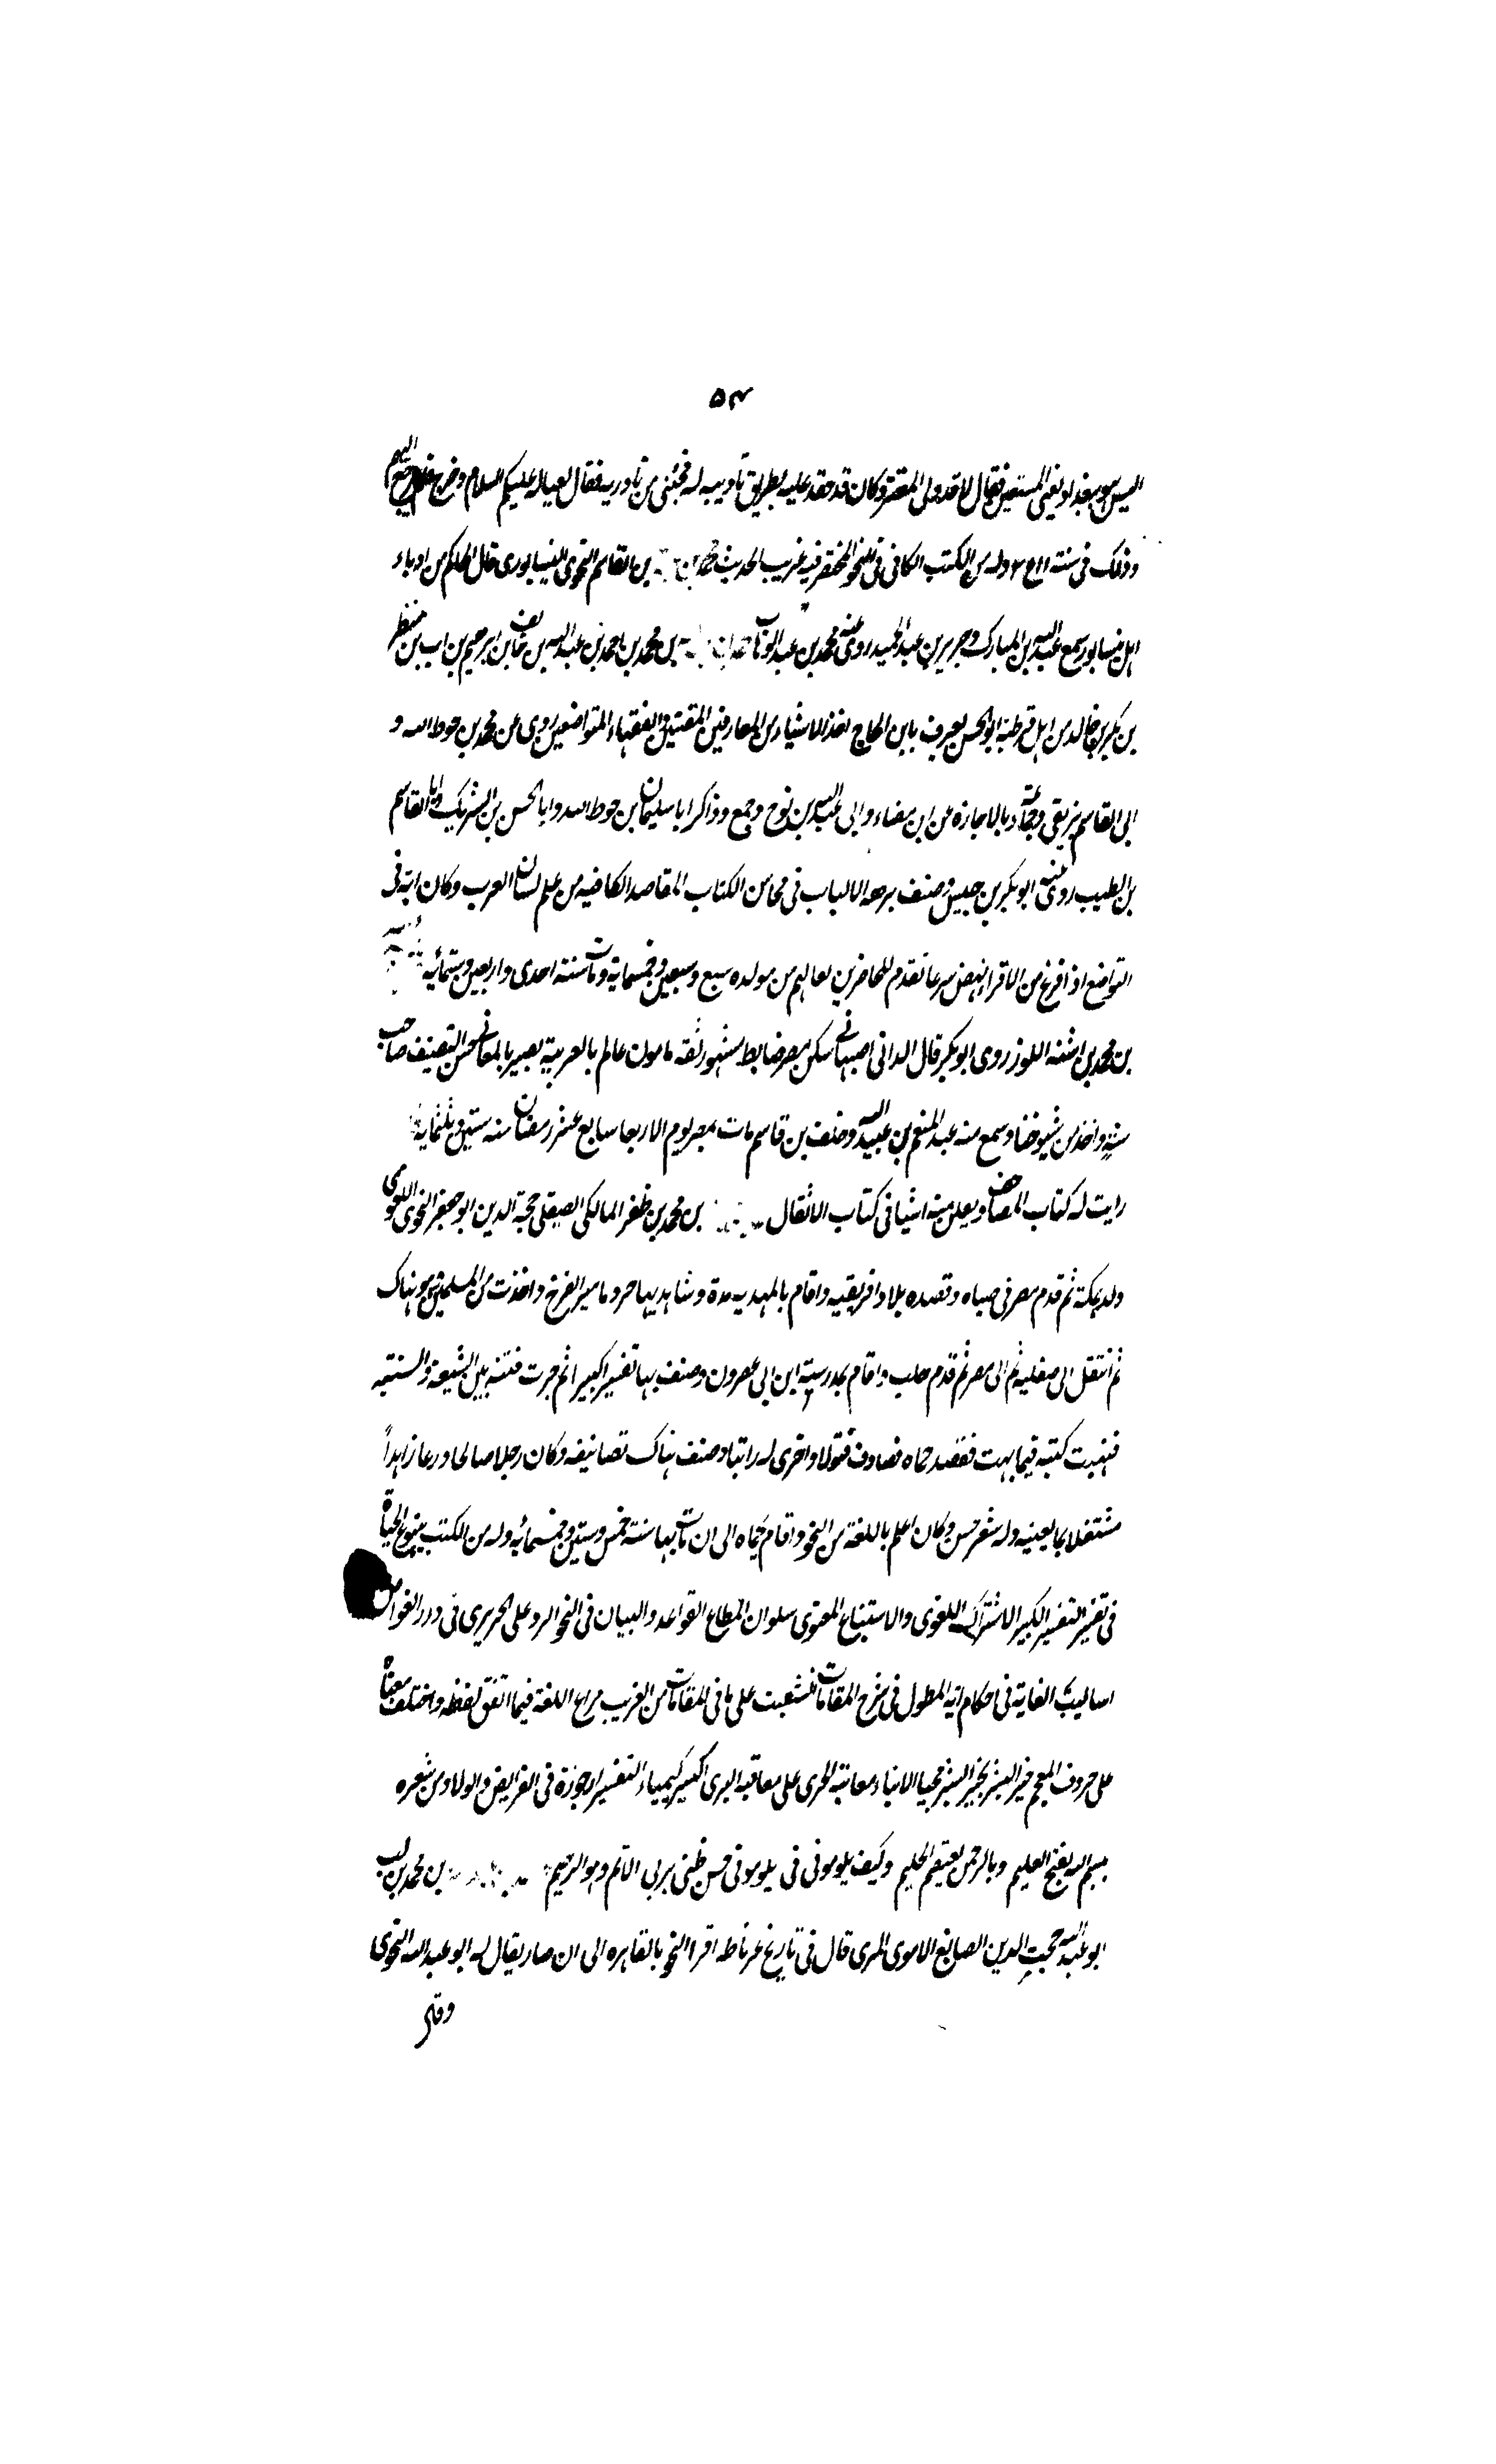 ۵۴
اليس هو ببغداد يعني المستعين فقال لا قد ولى المعتز وكان قد حقد عليه بطريق تاديبه له فخشى من بادرته فقال لعياله عليكم السلام وخرج
وذلك فى سنة وله من الكتب الكافى فى النحو المختصر فيه غريب الحديث بن القاسم النحوى النيسابورى قال الحاكم من ادباء
اهل نيسابور سمع عبد الله بن المبارك وجرير بن عبد الحميد روى عنه محمد بن عبد الوهاب بن محمد بن احمد بن عبد الله بن خلف بن ابرهيم بن لب بن
بن بكر بن خالد من اهل قرطبة ابو الحسن يعرف بابن الحاج اخذ الاشياء من العارفين المتقنين والفقهاء المتواضعين روى عن محمد بن حوط الله و
ابى القاسم بن بقى وجماعة وبالاجازة عن ابن مضاء وابى عبد الله بن نوح وجمع وذاكر ابا سليمان بن حوط الله وابا الحسن بن الشريك وابا القاسم
بن الطيب روى عنه ابو بكر بن حبيش وصنف نزهة الالباب فى محاسن الكتاب المقاصد الكافيه من علم لسان العرب وكان اية فى
التواضع اذا فرغ من الاقراء نهض سرعا تقدم للحاضرين نعالهم من مولده سبع وسبعين وخمسماية ومات سنة احدى واربعين وستمائه
بن محمد بن اشته اللوز روى ابو بكر قال الدانى اصبهانى سكن مصر ضابط مشهور ثقه مامون عالم بالعربية بصير بالمعانى حسن التصنيف صاحب
سنة واخذ من شيوخنا وسمع منه عبد المنعم بن عبيد الله وخلف بن قاسم مات بمصر يوم الاربعا سابع عشر رمضان سنه ستين وثلثماية
رايت له كتاب المصاحف ونقلت منه اشيا فى كتاب الاتقان بن محمد بن ظفر المالكى الصقلى حجة الدين ابو جعفر النحوى اللغوى
ولد بمكة ثم قدم مصر فى صباه وقصده بلاد افريقيه واقام بالمهديه مدة وشاهد بها حروبا من الفرنج واخذت من المسلمين وهو هناك
ثم انتقل الى صقليه ثم الى مصر ثم قدم حلب واقام بمدرسة ابن ابى عصرون وصنف بها تفسير اكبيرا ثم جرت فتنه بين الشيعة والسنته
فنهبت كتبه فيما نهبت فقصد حماه فصادف قبولا واجرى له راتبا وصنف هناك تصانيفه وكان رجلا صالحا ورعا زاهداً
مشتغلا بما يعنيه وله شعر حسن وكان اعلم باللغة من النحو واقام بحماه الى ان مات بها سنة خمس وستين وخمسمائه وله من الكتب ينبوع الحياة
فى تفسير التفسير الكبير الاشتراك اللغوى والاستنباع المعنوى سلوان المطاع القواعد والبيان فى النحو الرد على الحريرى فى درر الغواص
اساليب الغاية فى احكام اية المطول فى شرح المقامات على ما فى المقامات من الغريب اللغة فيما اتفق لفظه واختلف معناه
على حروف المعجم خير البشر بخير البشر معاتبة الجرى على معاقبه البرى اكسير كيمياء التفسير ارجوزة فى الفرايض والولاء ومن شعره
ببسم الله يفتح العليم وبالرحمن يعتصم الحليم وكيف يلومونى فى يلومونى حسن ظنى بربى الاثم وهو الرحيم بن محمد بن لب
ابو عبد الله محب الدين الصايغ الاموى المرى قال فى تاريخ غرناطه اقرا النحو بالقاهره الى ان صار يقال له ابو عبد الله النحوى